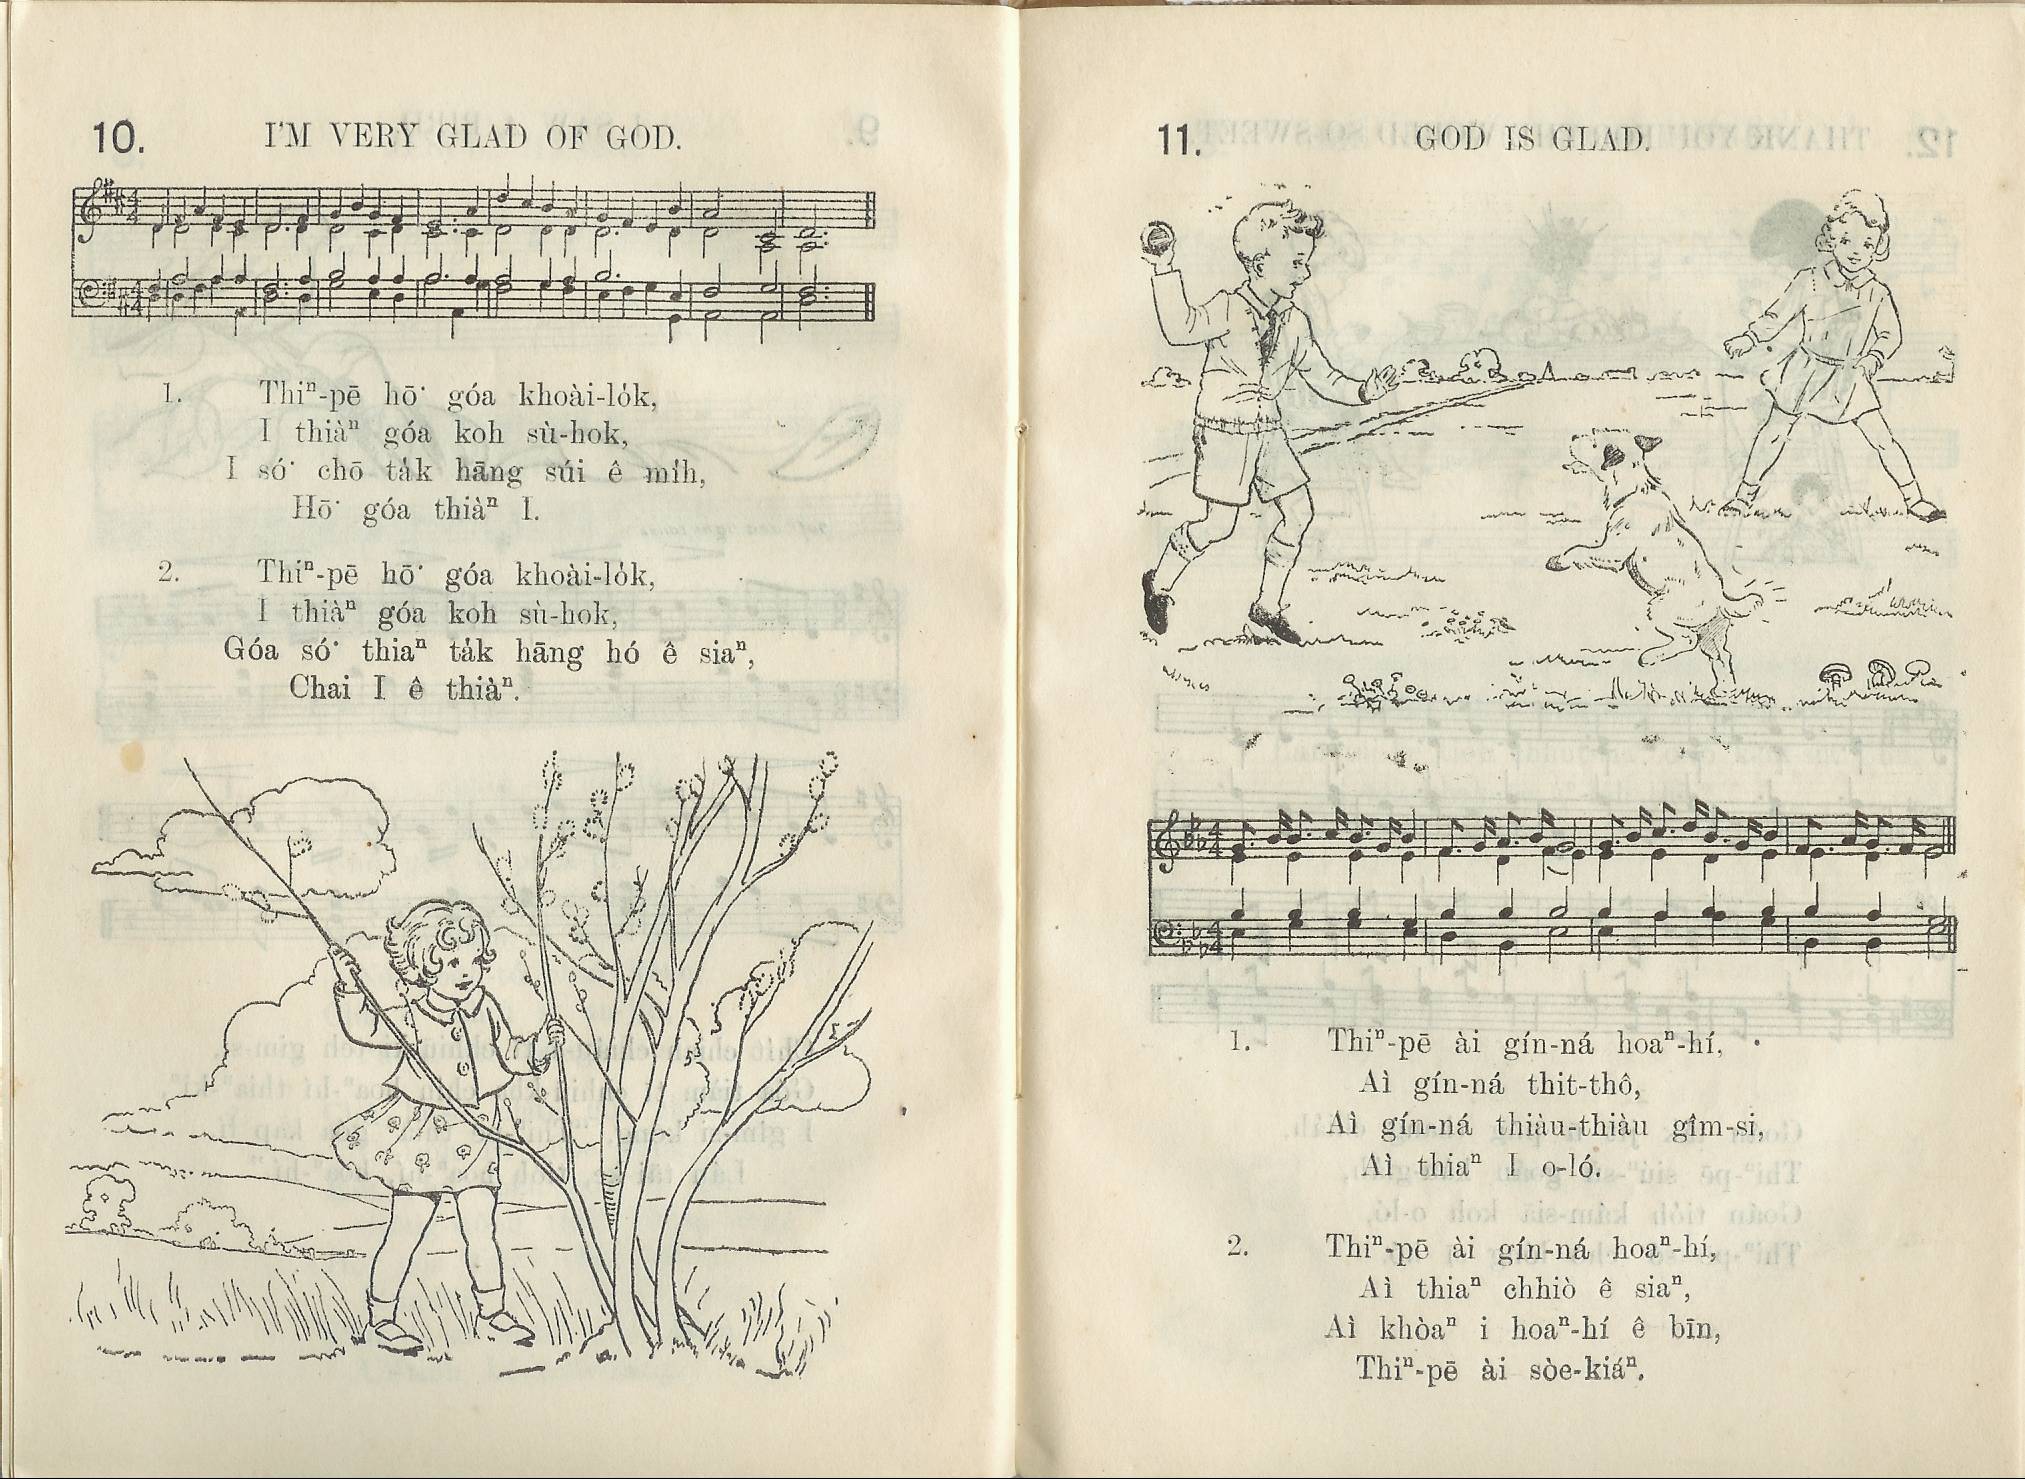 10. I'M VERY GLAD OF GOD.
1. Thiⁿ-pē hō͘ góa khoài-lo̍k,
I thiàⁿ góa koh sù-hok,
I só͘ chō ta̍k hāng súi ê mi̍h,
Hō͘ góa thiàⁿ I.
2. Thiⁿ-pē hō͘ góa khoài-lo̍k,
I thiàⁿ góa koh sù-hok,
Góa só͘ thiaⁿ ta̍k hāng hó ê siaⁿ,
Chai I ê thiàⁿ.
11. GOD IS GLAD.
1. Thiⁿ-pē ài gín-ná hoaⁿ-hí,
Aì gín-ná thit-thô,
Aì gín-ná thiàu-thiàu gîm-si,
Aì thiaⁿ I o-ló.
2. Thiⁿ-pē ài gín-ná hoaⁿ-hí,
Aì thiaⁿ chhiò ê siaⁿ,
Aì khòaⁿ i hoaⁿ-hí ê bīn,
Thiⁿ-pē ài sòe-kiáⁿ.